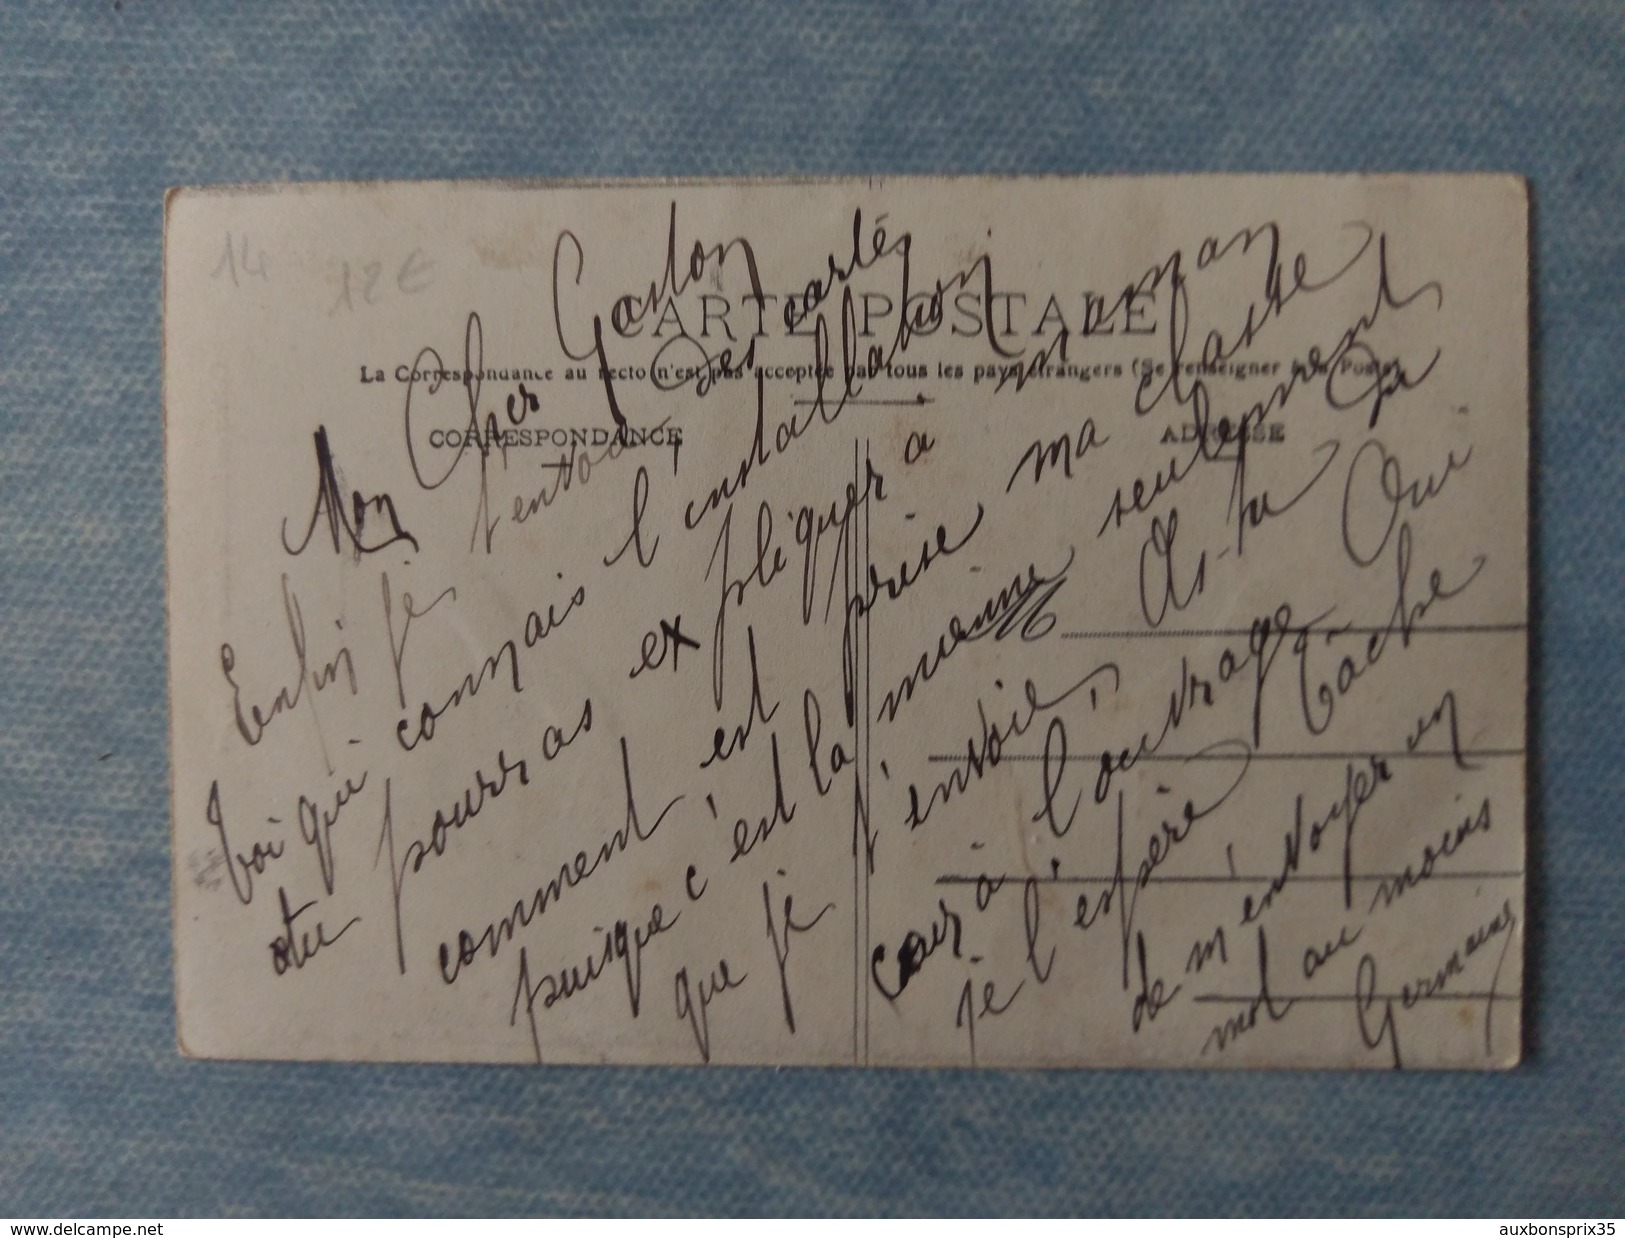 14 12€
CARTE POSTALE
La Correspondance au recto n'est pas acceptée par tous les pays étrangers (Se renseigner à la Poste)
CORRESPONDANCE
ADRESSE
Mon Cher Gaston
Enfin je t'envoie, des cartes
toi qui connais l'installation
tu pourras expliquer à maman
comment est prise ma classe
puisque c'est la mienne seulement
que je t'envoie, As-tu du
cœur à l'ouvrage Oui
je l'espère Tâche
de m'envoyer un
mot au moins
Germaine
www.delcampe.net
auxbonsprix35